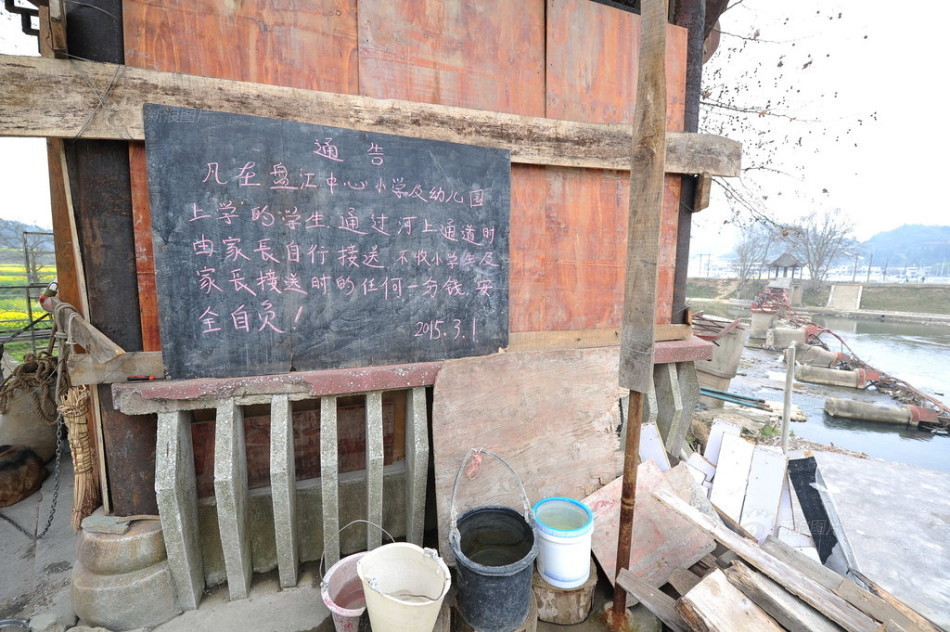 通告
凡在盘江中心小学及幼儿园
上学的学生通过河上通道时
由家長自行接送.不收小学生及
家長接送时的任何一分钱.安
全自负!
2015.3.1
新浪图片